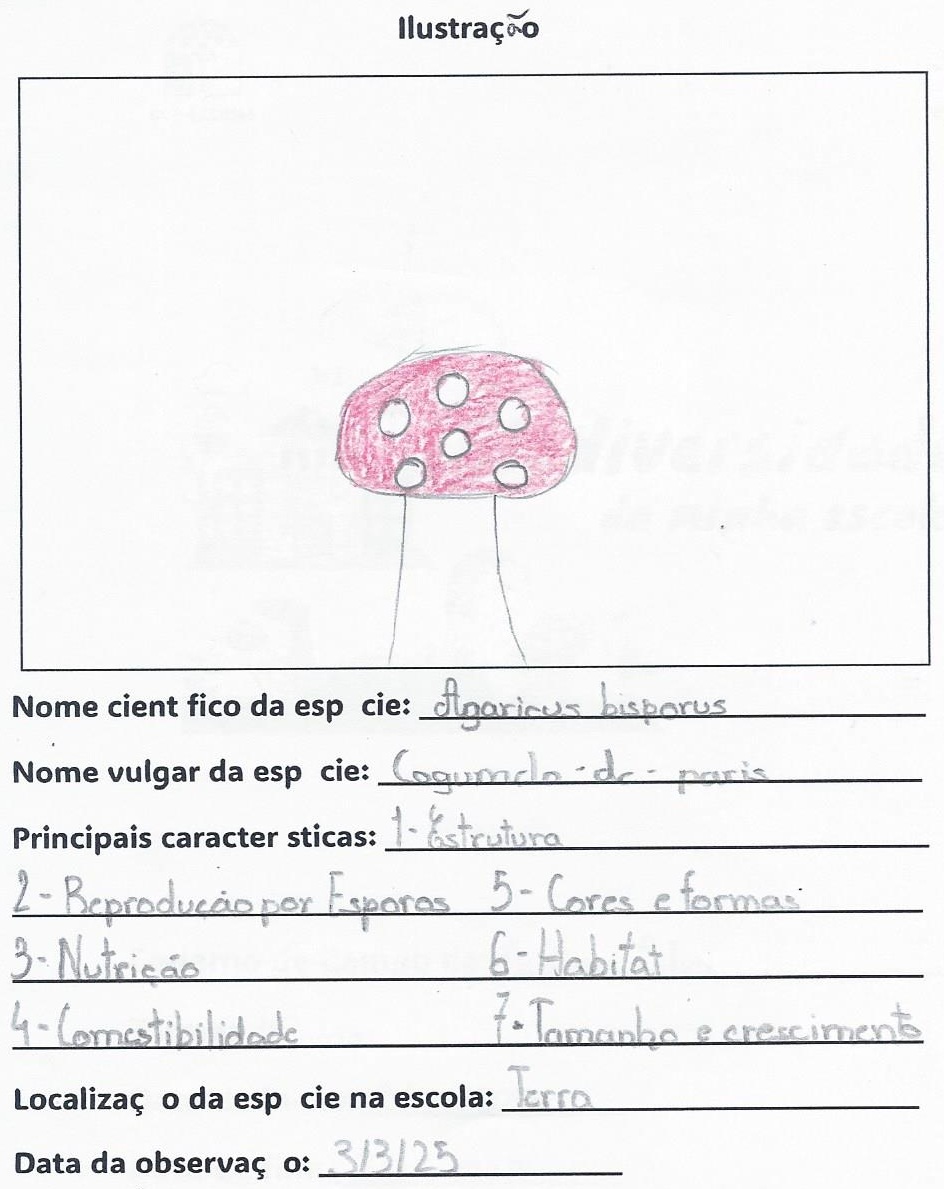 Ilustração
Nome cient fico da esp cie: Agaricus bisporus
Nome vulgar da esp cie: Cogumelo-de-paris
Principais caracter sticas: 1-Estrutura
2-Reprodução por Esporos 5-Cores e formas
3-Nutrição 6-Habitat
4-Comestibilidade 7-Tamanho e crescimento
Localizaç o da esp cie na escola: Terra
Data da observaç o: 3/3/25